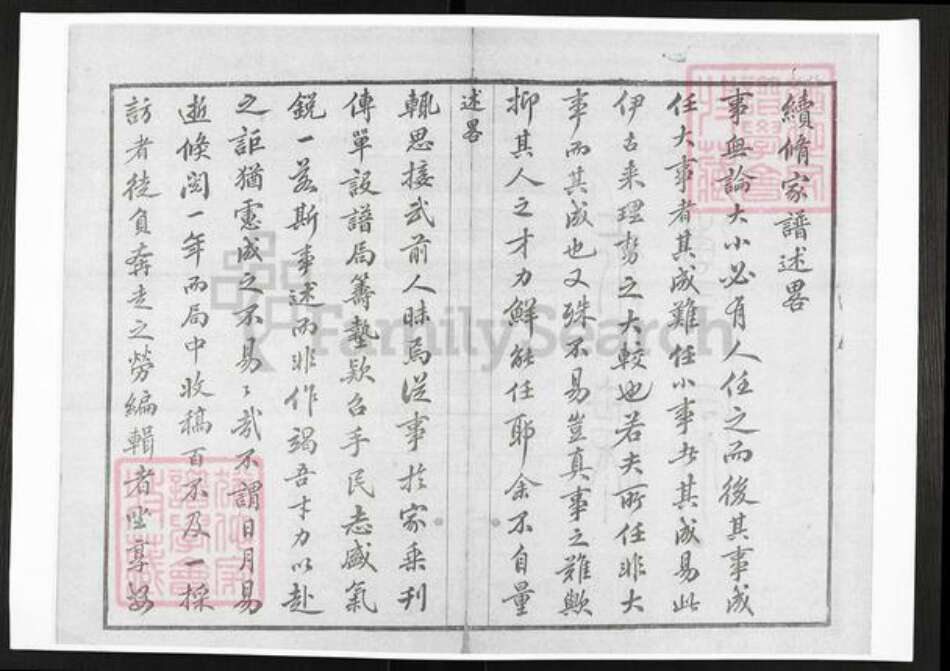 續脩家譜述畧
事無論大小必有人任之而後其事成
任大事者其成難任小事者其成易此
伊古來理勢之大較也若夫所任非大
事而其成也又殊不易豈真事之難歟
抑其人之才力鮮能任耶余不自量
述畧
輒思接武前人昧焉從事於家乘刊
傳單設譜局籌墊欵召手民志盛氣
銳一若斯事述而非作竭吾才力以赴
之詎猶慮成之不易易哉不謂日月易
逝倏閱一年而局中收稿百不及一採
訪者徒負奔走之勞編輯者坐尊
FamilySearch